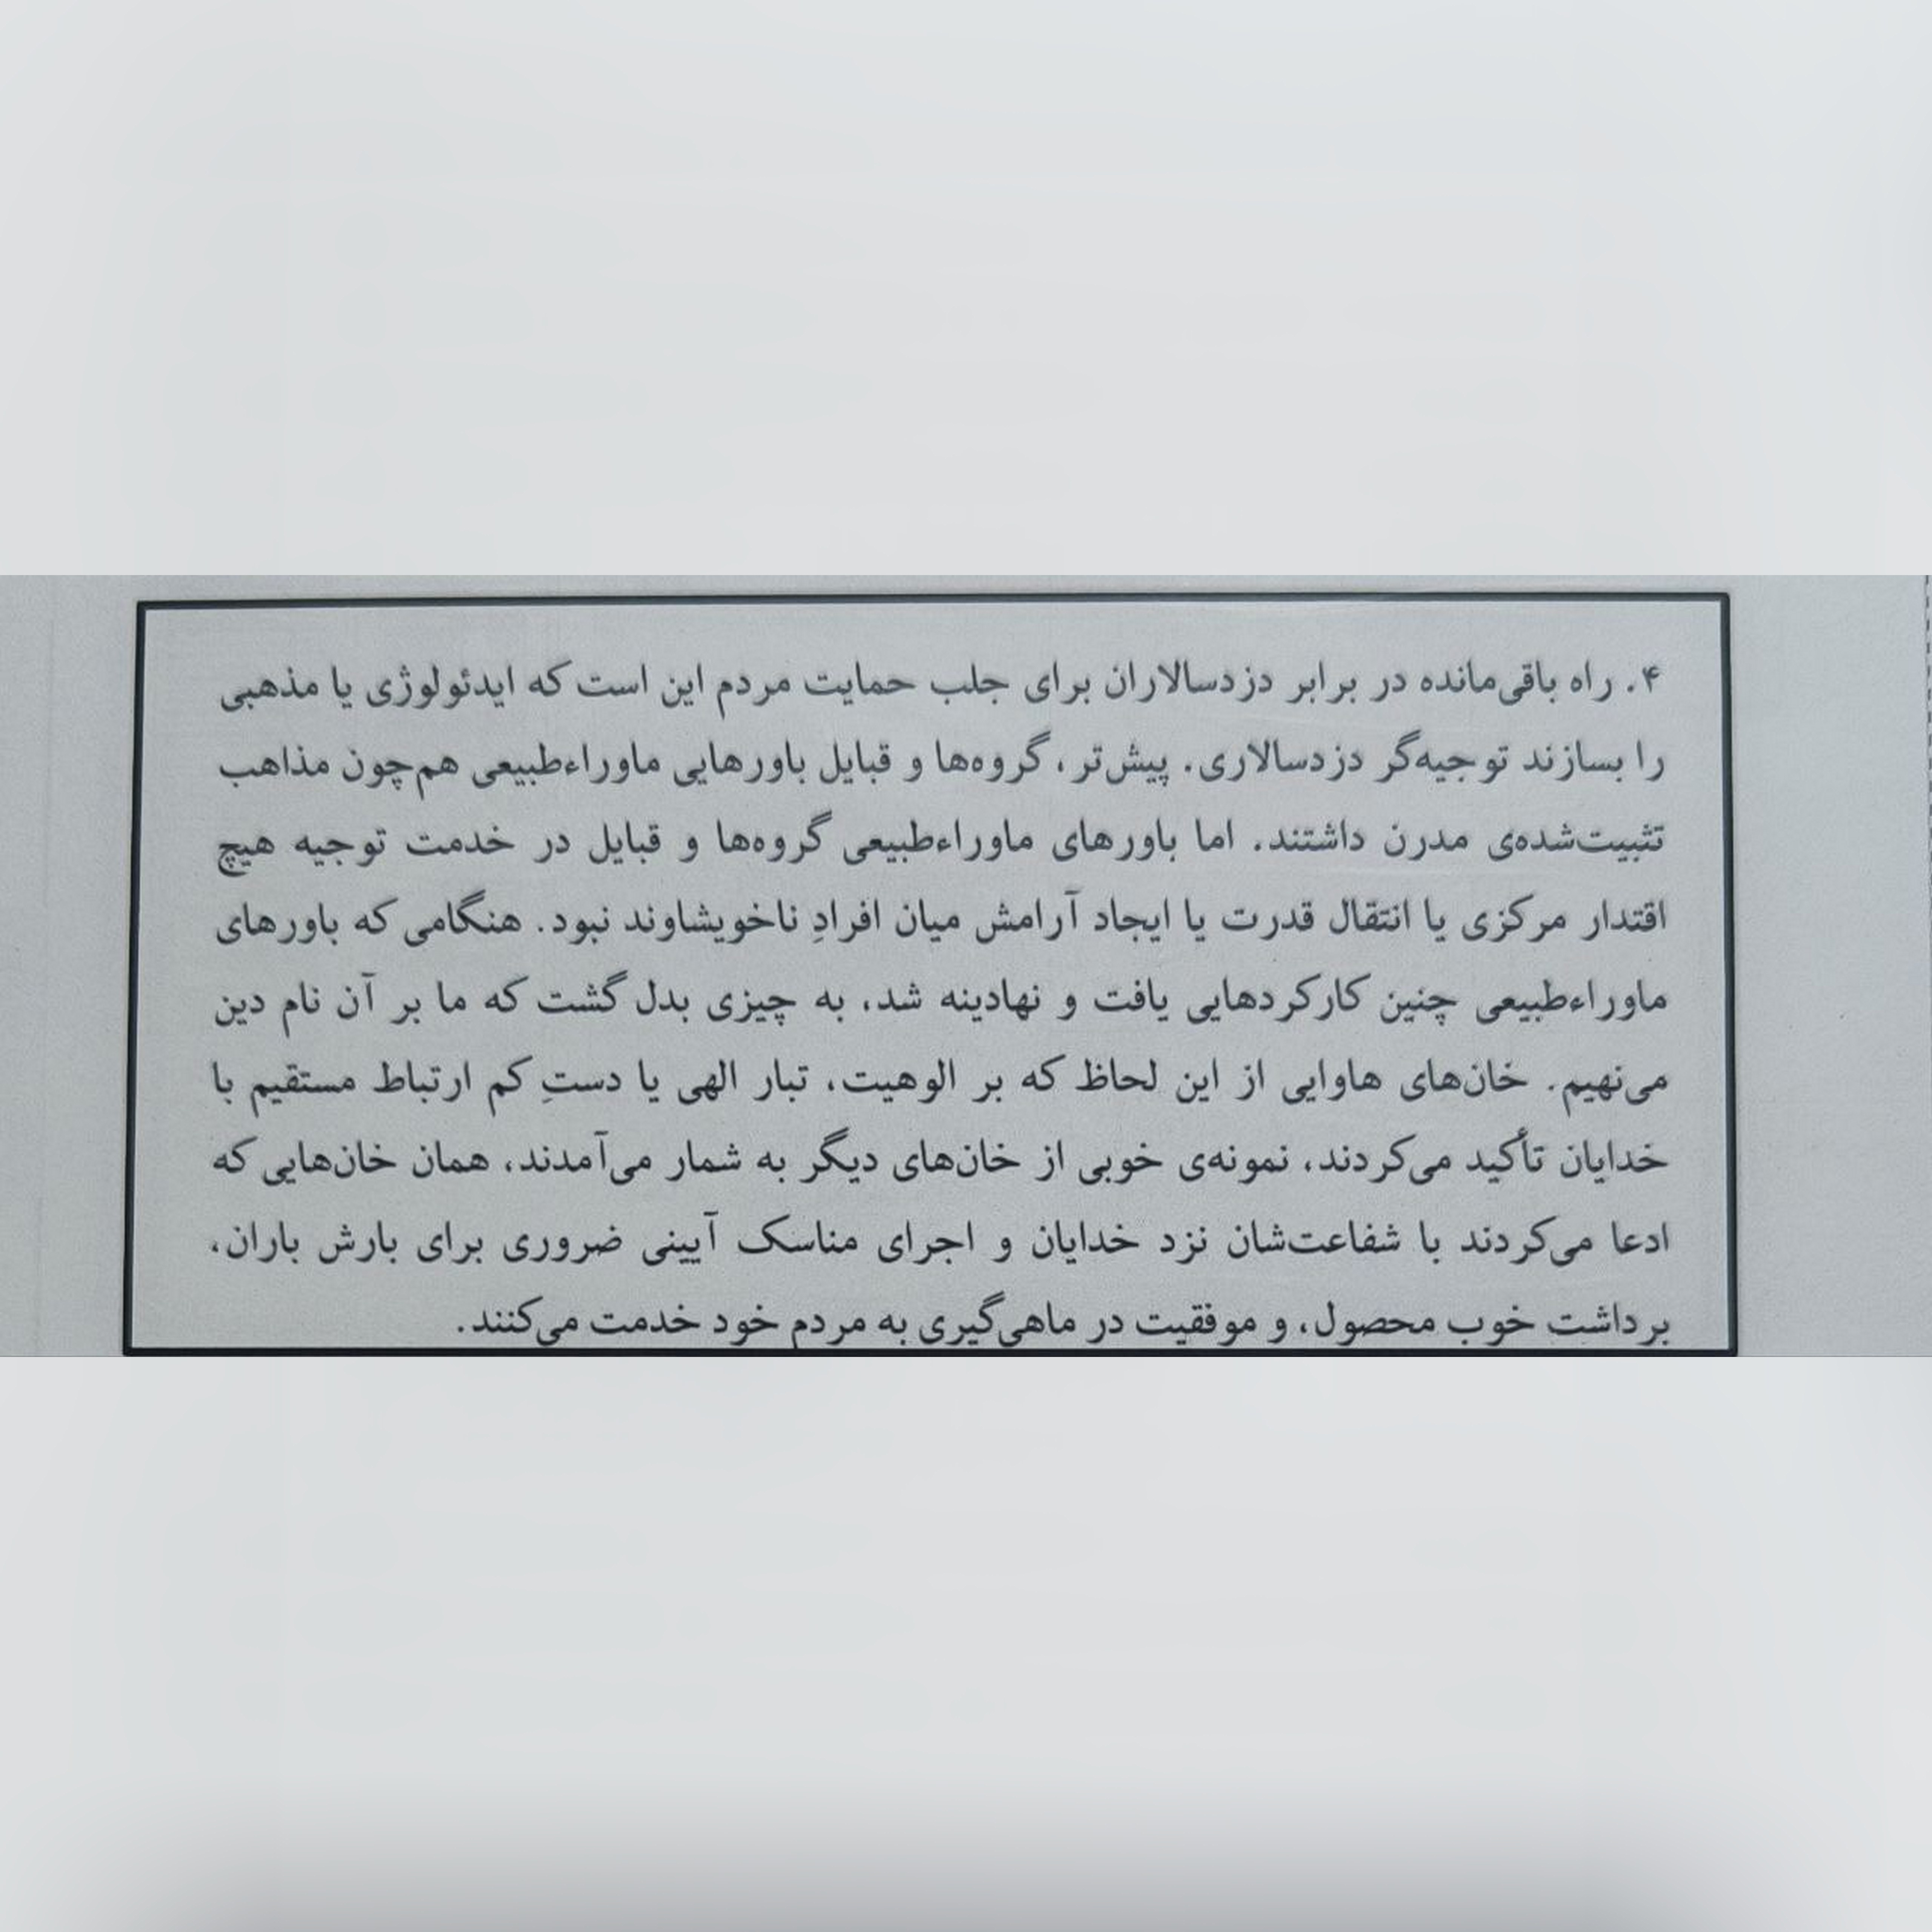 ۴. راه باقی‌مانده در برابر دزدسالاران برای جلب حمایت مردم این است که ایدئولوژی یا مذهبی
را بسازند توجیه‌گر دزدسالاری. پیش‌تر، گروه‌ها و قبایل باورهایی ماوراءطبیعی هم‌چون مذاهب
تثبیت‌شده‌ی مدرن داشتند. اما باورهای ماوراءطبیعی گروه‌ها و قبایل در خدمت توجیه هیچ
اقتدار مرکزی یا انتقال قدرت یا ایجاد آرامش میان افرادِ ناخویشاوند نبود. هنگامی که باورهای
ماوراءطبیعی چنین کارکردهایی یافت و نهادینه شد، به چیزی بدل گشت که ما بر آن نام دین
می‌نهیم. خان‌های هاوایی از این لحاظ که بر الوهیت، تبار الهی یا دستِ کم ارتباط مستقیم با
خدایان تأکید می‌کردند، نمونه‌ی خوبی از خان‌های دیگر به شمار می‌آمدند، همان خان‌هایی که
ادعا می‌کردند با شفاعت‌شان نزد خدایان و اجرای مناسک آیینی ضروری برای بارش باران،
برداشت خوب محصول، و موفقیت در ماهی‌گیری به مردم خود خدمت می‌کنند.